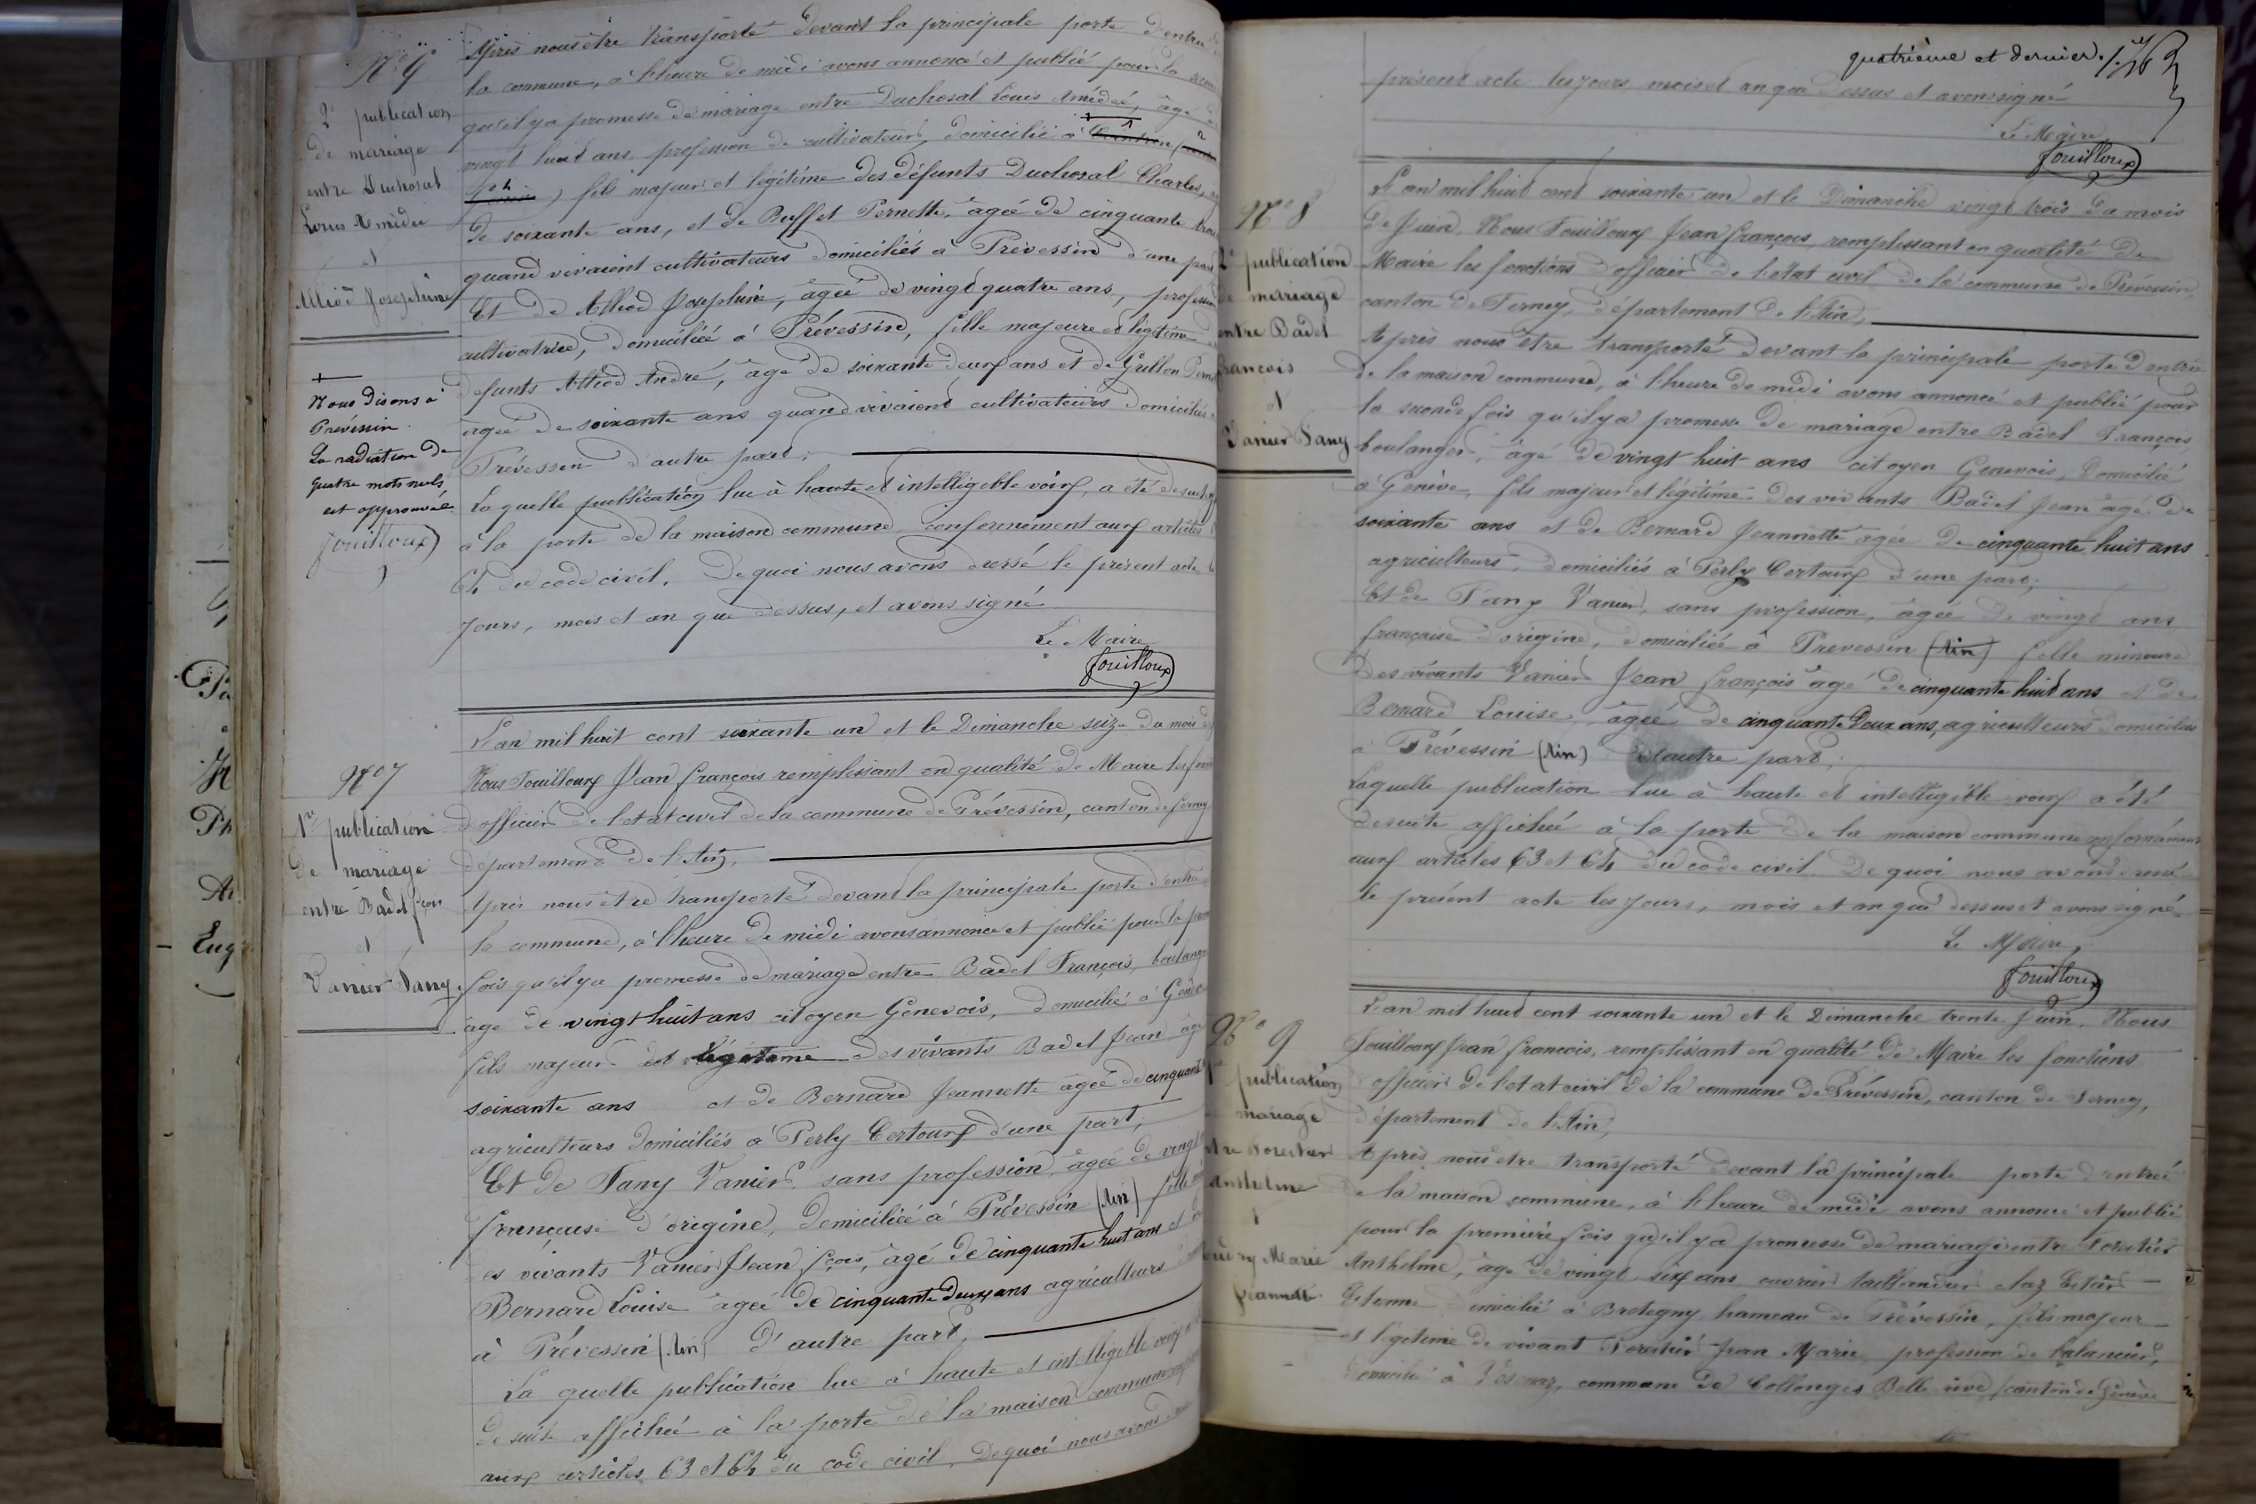 2e publication
de mariage
entre Duchosal
Louis Amédée
et
Alliod Joséphine
Nous disons à
Prévessin.
La radiation de
quatre mots nuls
est approuvée
Fouilloux
Après nous être transporté devant la principale porte d'entrée
la commune, à l'heure de midi avons annoncé et publié pour la
qu'il y a promesse de mariage entre Duchosal Louis Amédée, âgé
vingt huit ans profession de cultivateur, domicilié à
fils majeur et légitime des défunts Duchosal Charles,
de soixante ans, et de Buffet Pernette, âgée de cinquante
quand vivaient cultivateurs domiciliés à Prévessin d'une part
Et de Alliod Joséphine, âgée de vingt quatre ans, profession
cultivatrice, domiciliée à Prévessin, fille majeure et légitime
défunts Alliod André, âgé de soixante deux ans et de Grillon
âgée de soixante ans quand vivaient cultivateurs domiciliés
Prévessin d'autre part;
La quelle publication lue à haute et intelligible voix, a été de suite
à la porte de la maison commune conformément aux articles
64 du code civil. De quoi nous avons dressé le présent acte
jours, mois et an que dessus, et avons signé
Le Maire
Fouilloux
No 7
1re publication
de mariage
entre Badel fçois
et
Vanier Fany
L'an mil huit cent soixante un et le Dimanche seize du mois
Nous Fouilloux Jean François remplissant en qualité de Maire les
d'officier de l'état civil de la commune de Prévessin, canton de Ferney
département de l'Ain,
Après nous être transporté devant la principale porte d'entrée
la commune, à l'heure de midi avons annoncé et publié pour la
fois qu'il y a promesse de mariage entre Badel François, boulanger
âgé de vingt huit ans citoyen Genevois, domicilié à Genève
fils majeur et légitime des vivants Badel Jean âgé
soixante ans et de Bernard Jeannette âgée de cinquante
agriculteurs domiciliés à Perly Certoux d'une part;
Et de Fany Vanier sans profession, âgée de vingt
française d'origine, domiciliée à Prévessin (Ain) fille
des vivants Vanier Jean fçois, âgé de cinquante huit ans et de
Bernard Louise âgée de cinquante deux ans agriculteurs
à Prévessin (Ain) d'autre part,
La quelle publication lue à haute et intelligible voix
de suite affichée à la porte de la maison commune
aux articles 63 et 64 du code civil. De quoi nous avons
quatrième et dernier.
présent acte les jours, mois et an que dessus et avons signé
Le Maire
Fouilloux
No 8
2e publication
de mariage
entre Badel
François
et
Vanier Fany
L'an mil huit cent soixante un et le Dimanche vingt trois du mois
de Juin. Nous Fouilloux Jean François, remplissant en qualité de
Maire les fonctions d'officier de l'état civil de la commune de Prévessin,
canton de Ferney, département de l'Ain,
Après nous être transporté devant la principale porte d'entrée
de la maison commune, à l'heure de midi avons annoncé et publié pour
la seconde fois qu'il y a promesse de mariage entre Badel François,
boulanger, âgé de vingt huit ans citoyen Genevois, domicilié
à Genève, fils majeur et légitime des vivants Badel Jean âgé de
soixante ans et de Bernard Jeannette âgée de cinquante huit ans
agriculteurs, domiciliés à Perly Certoux d'une part;
Et de Fany Vanier, sans profession, âgée de vingt ans
française d'origine, domiciliée à Prevessin (Ain) fille mineure
des vivants Vanier Jean François âgé de cinquante huit ans et de
Bernard Louise, âgée de cinquante deux ans, agriculteurs domiciliés
à Prévessin (Ain) d'autre part;
Laquelle publication lue à haute et intelligible voix a été
de suite affichée à la porte de la maison commune conformément
aux articles 63 et 64 du code civil. De quoi nous avons dressé
le présent acte les jours, mois et an que dessus et avons signé
Le Maire,
Fouilloux
No 9
publication
mariage
Anthelme
et
Marie
Jeannette
L'an mil huit cent soixante un et le Dimanche trente Juin. Nous
Fouilloux Jean François, remplissant en qualité de Maire les fonctions
d'officier de l'état civil de la commune de Prévessin, canton de Ferney,
département de l'Ain,
Après nous être transporté devant la principale porte d'entrée
de la maison commune, à l'heure de midi avons annoncé et publié
pour la première fois qu'il y a promesse de mariage entre
Anthelme, âgé de vingt six ans ouvrier taillandier chez
Etienne domicilié à Bretegny hameau de Prévessin, fils majeur
et légitime de vivant Jean Marie profession de balancier,
domicilié à Vésenaz, commune de Collonges Belle rive (canton de Genève